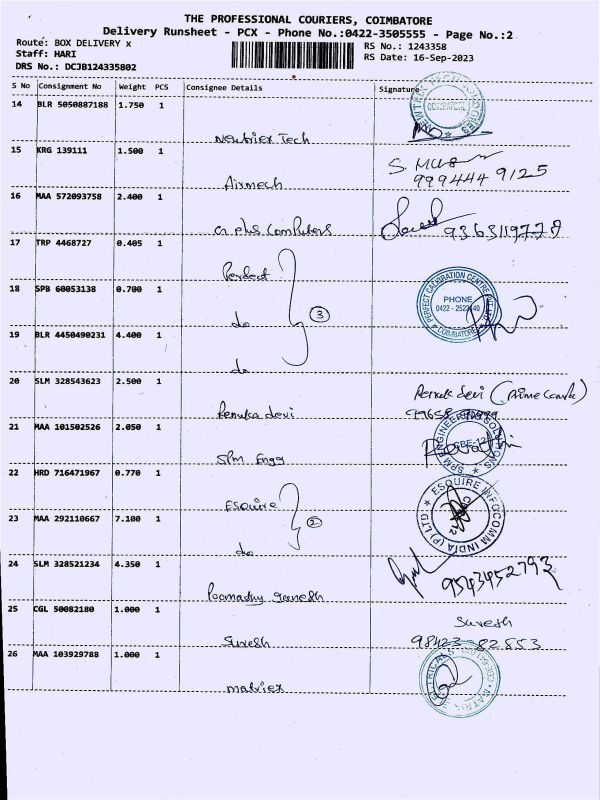 THE PROFESSIONAL COURIERS, COIMBATORE
Delivery Runsheet - PCX - Phone No.:0422-3505555 - Page No.:2
Route: BOX DELIVERY x
RS No.: 1243358
Staff: HARI
RS Date: 16-Sep-2023
DRS No.: DCJB124335802
S No Consignment No Weight PCS Consignee Details Signature
14 BLR 5050887188 1.750 1
COIMBATORE
15 KRG 139111 1.500 1
S.
999444 9125
Airmech
16 MAA 572093758 2.400 1
plus Computers
9363119778
17 TRP 4468727 0.405 1
Perfect
18 SPB 60053138 0.700 1
PERFECT CALIBRATION CENTRE
PHONE
COIMBATORE
do
3
19 BLR 4450490231 4.400 1
do
20 SLM 328543623 2.500 1
Renuka devi
Devi (prime
21 MAA 101502526 2.050 1
SPM ENGINEERING SOLUTIONS
CBE-12
SPM Engg
22 HRD 716471967 0.770 1
ESQUIRE
2
23 MAA 292110667 7.100 1
ESQUIRE INFOCOMM INDIA (P) LTD
do
24 SLM 328521234 4.350 1
9543452793
25 CGL 50082180 1.000 1
Suresh
98423 82553
Suresh
26 MAA 103929788 1.000 1
matriex